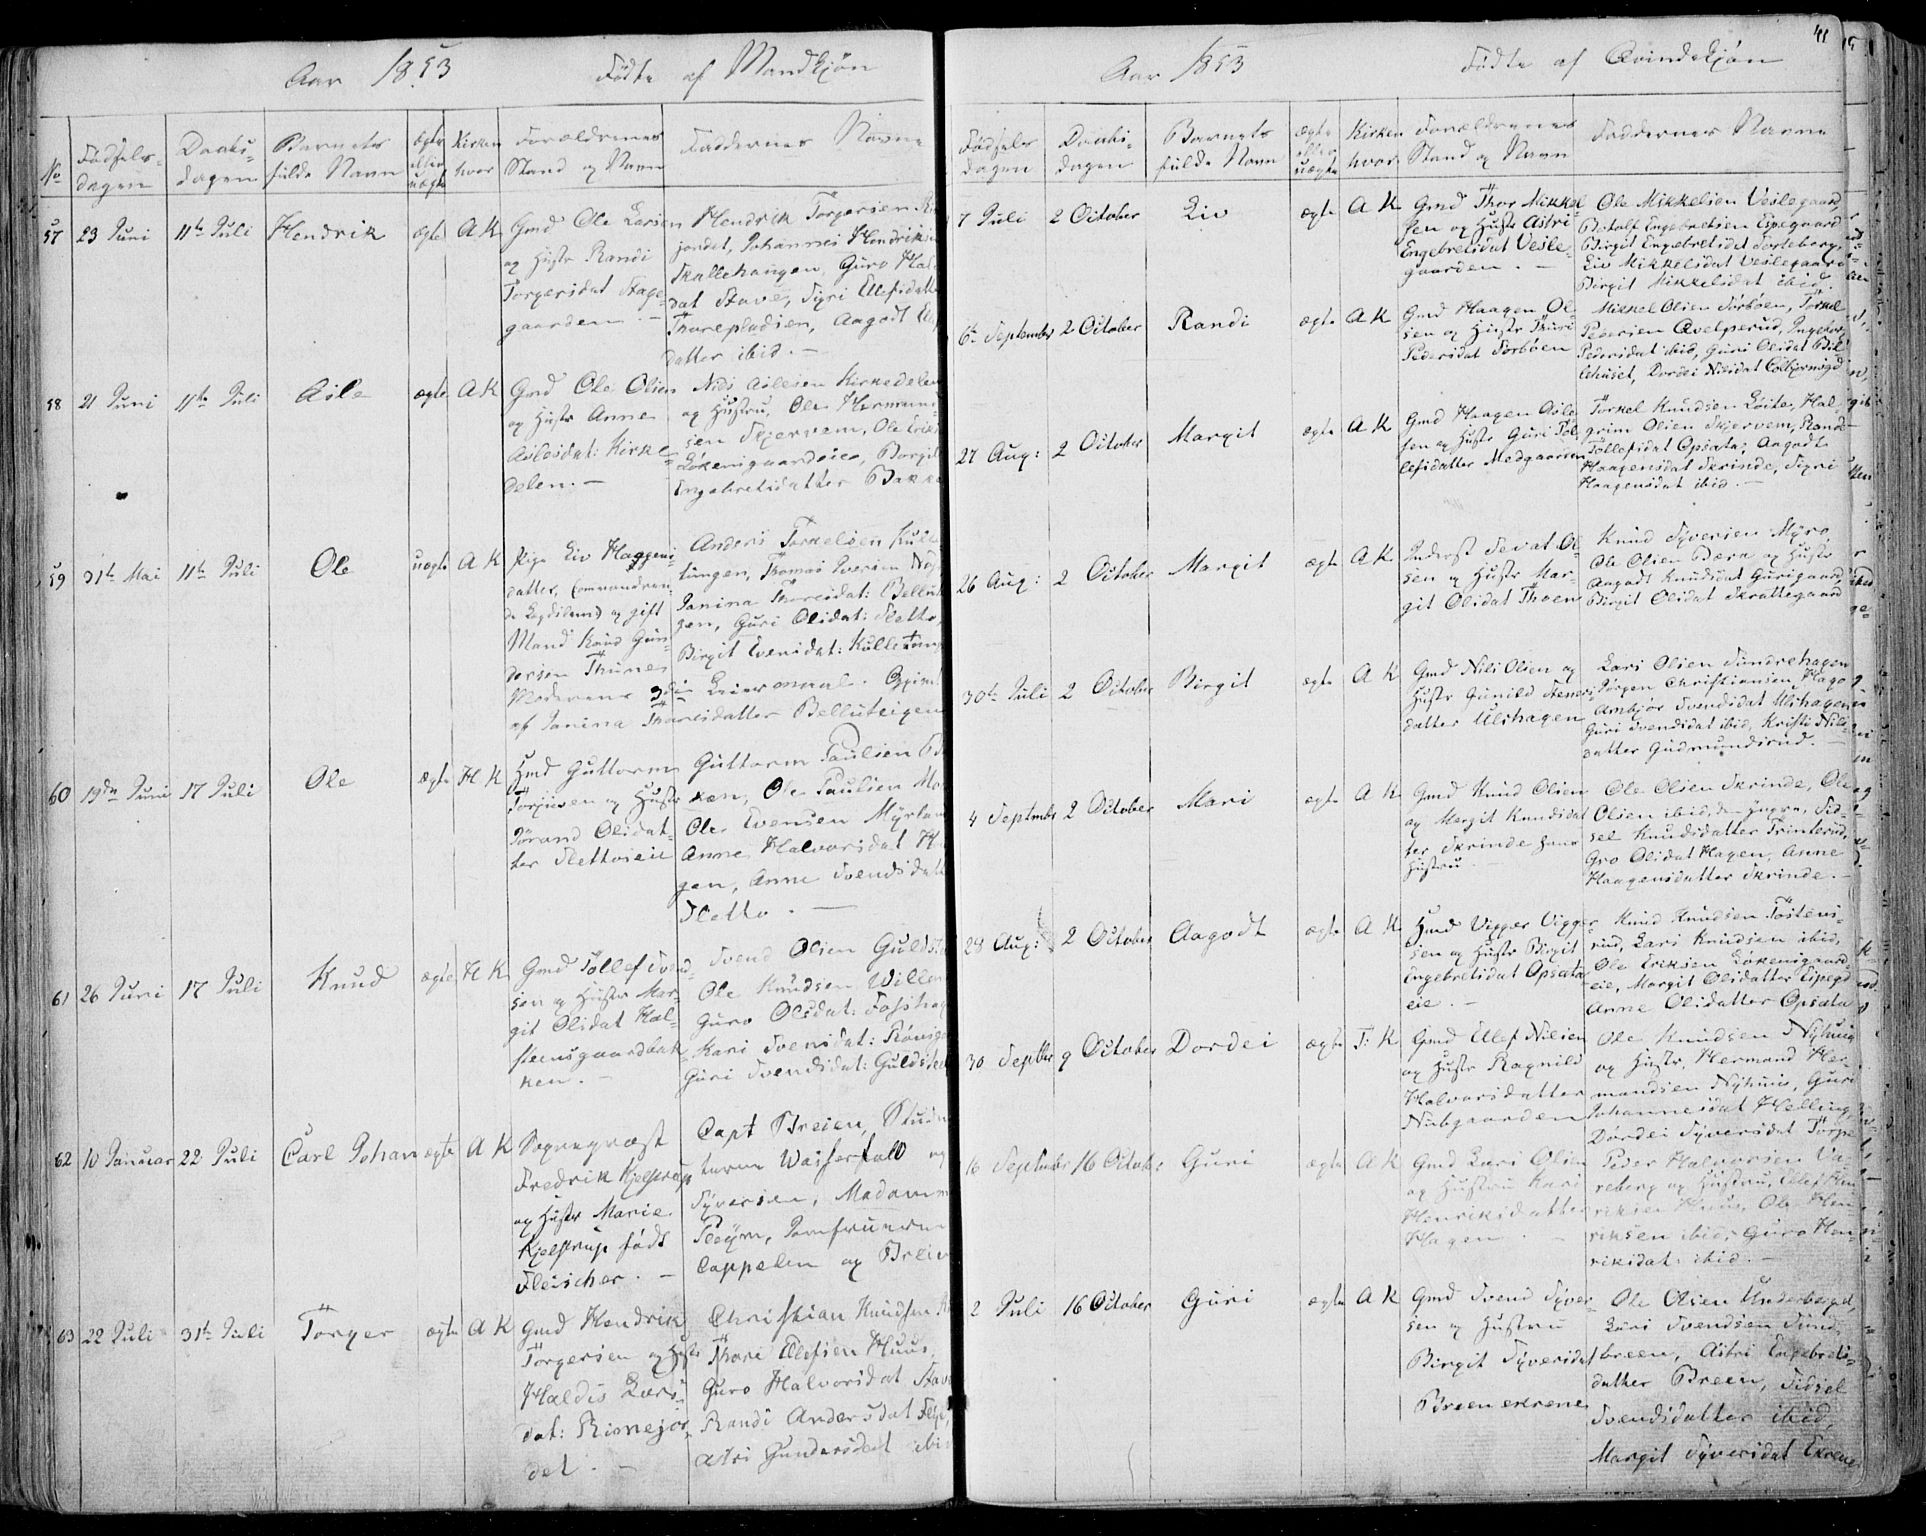 Aar 1853 Fødte af Mandkjøn
No
Fødsels-
dagen
Daabs-
dagen
Barnets
fulde Navn
ægte
eller
uægte
Kirken
hvor
Forældrenes
Stand og Navn
Faddernes Navne
57 23 Juni 11te Juli Hendrik ægte A K
Gmd Ole Larsen
og Hustr Randi
Torgersdat Stage-
gaarden. —
Hendrik Torgersen
jordet, Johannes Hendriksen
Skallehaugen, Guro Hal
dat Stave, Sigri Ellefsdatter
Thorepladsen, Aagodt
datter ibid. —
58 21 Juni 11te Juli Asle ægte A K
Gmd Ole Olsen
og Hustr Anne
Aslesdat: Kirke-
delen. —
Nils Aslesen Kirkedelen
og Hustru, Ole Hermund
sen Skjervem, Ole Eriks
Løkensgaardseie, Borgil
Engebretsdatter Bakke
59 31te Mai 11te Juli Ole uægte A K
Pige Liv Haagens-
datter, (omvandren-
de Lægdslem) og gift
Mand Knud Gun-
dersen Thune
Moderens 3die Leiermaal.
af Janina Thoresdatter Belluteigen
Anders Torkelsen Kulle-
tungen, Thomas Iversen
Janina Thoresdat: Bellut
gen, Guri Olsdat: Sletto,
Birgit Evensdat: Kulletun
60 19de Juni 17 Juli Ole ægte H K
Hmd Guttorm
Torjusen og Hustr
Jørand Olsdat-
ter Slettoeie
Guttorm Paulsen
ken, Ole Paulsen
Ole Evensen Myrlan
Anne Halvorsdat
gen, Anne Svendsdat
Sletto. —
61 26 Juni 17 Juli Knud ægte H K
Gmd Tollef Svend-
sen og Hustr Mar-
git Olsdat Hal-
steensgaardbak-
ken. —
Svend Olsen Gulds
Ole Knudsen Willen
Guro Olsdat: Fosshag
Kari Svensdat: Rønisg
Guri Svendsdat: Guldstee
62 10 Januar 22 Juli Carl Johan ægte A K
Sognepræst
Fredrik Kjelstrup
og Hustr Marie
Kjelstrup født
Fleischer. —
Capt Breien, Stud
Wasserfald og
Syversen, Madamm
Pleym, Jomfruerne
Cappelen og Brei
63 22 Juli 31te Juli Torger ægte A K
Gmd Hendrik
Torgersen og Hustr
Haldis Lars-
dat: Rimejor-
det. —
Christian Knudsen
Thore Ellefsen Huus,
Guro Halvorsdat Stav
Randi Andersdat
Astri Gundersdat ibi
41
Aar 1853 Fødte af Qvindekjøn
Fødsels
dagen
Daabs-
dagen
Barnets
fulde Navn
ægte
eller
uægte
Kirken
hvor
Forældrenes
Stand og Navn
Faddernes Navne
7 Juli 2 October Liv ægte A K
Gmd Thor Mikkel-
sen og Hustr Astri
Engebretsdat Vesle-
gaarden. —
Ole Mikkelsen Veslegaard,
Botolf Engebretsen Espegaard
Birgit Engebretsdat Torteberg,
Liv Mikkelsdat Veslegaard
Birgit Mikkelsdat ibid.
6te September 2 October Randi ægte A K
Gmd Haagen Ol-
sen og Hustr Thuri
Pedersdat Sorbøen
Mikkel Olsen Sorbøen, Torkel
Pedersen Qvelprud, Ingeborg
Pedersdat ibid, Guri Olsdat Bik-
lehuset, Dordei Nilsdat
27 Aug: 2 October Margit ægte A K
Gmd Haagen Asle-
sen og Hustr Guri Tol-
lefsdatter Medgaarden
Torkel Knudsen Loite, Hal-
grim Olsen Skjervem, Randi
Tollefsdat Opsata, Aagodt
Haagensdat Skrinde, Sigri
Haagensdat ibid. —
26 Aug: 2 October Margit ægte A K
Inderst Sevat Ol-
sen og Hustr Mar-
git Olsdat Thoen
Knud Syversen Myro,
Ole Olsen Bera og Hustr
Aagodt Knudsdat Gurigaard,
Birgit Olsdat Skrattegaard
30te Juli 2 October Birgit ægte A K
Gmd Nils Olsen og
Hustr Gunild Steners-
datter Ulshagen
Lars Olsen Sundrehagen
Jørgen Christiansen Hago
Ambjør Svendsdat Ulshagen
Guri Svendsdat ibid, Kristi Nils-
datter Gudmundsrud. —
4 Septmbr 2 October Mari ægte A K
Gmd Knud Olsen
og Margit Knudsdat-
ter Skrinde hans
Hustru
Ole Olsen Skrinde, Ole
Olsen ibid, den Yngre, Sid-
sel Knudsdatter Trinterud,
Gro Olsdat Hagen, Anne
Haagensdatter Skrinde. —
28 Aug: 2 October Aagodt ægte A K
Hmd Vigger Vigger-
sen og Hustr Birgit
Engebretsdat Opsata-
eie. —
Knud Knudsen Tostens-
rud, Lars Knudsen ibid,
Ole Eriksen Løkensgaard
eie, Margit Olsdatter Espegd
Anne Olsdatter Opsata
30 Septbr 9 October Dordei ægte T: K
Gmd Ellef Nilsen
og Hustr Ragnild
Halvorsdatter
Nubgaarden
Ole Knudsen Nyhuus
og Hustr, Hermand Her-
mandsen Nyhuus, Guri
Johannesdat Helling
Dordei Syversdat Torpe
16 Septmbr 16 October Guri ægte A K
Gmd Lars Olsen
og Hustru Kari
Henriksdatter
Hagen. —
Peder Halvorsen Va-
reberg og Hustru, Ellef Hen-
riksen Huus, Ole Hen-
riksen ibid, Guro Hen-
riksdat: ibid. —
2 Juli 16 October Guri ægte A K
Gmd Svend Syver-
sen og Hustru
Birgit Syversdat
Breenekrene
Ole Olsen Underberget,
Lars Svendsen Sund-
breen, Astri Engebrets-
datter Breen, Sidsel
Svendsdatter ibid,
Margit Syversdat Ekrene